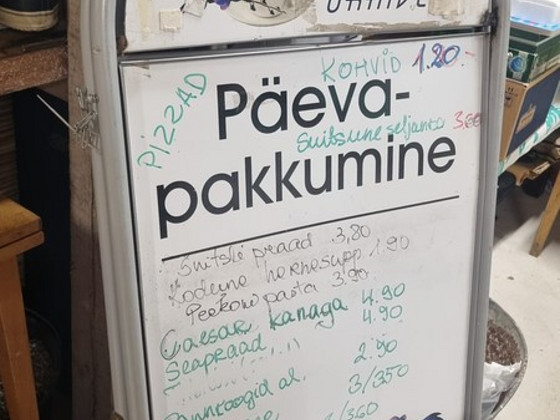 PIZZAD
KOHVID 1.20
Päeva-
Suitsune seljanka 3,60
pakkumine
Snitsli praad 3,80
Kodune hernesupp 1.90
Peekoni pasta 3.90
Caesar kanaga 4.90
Seapraad 4.90
2.90
Pannkoogid al.
3/350
/360